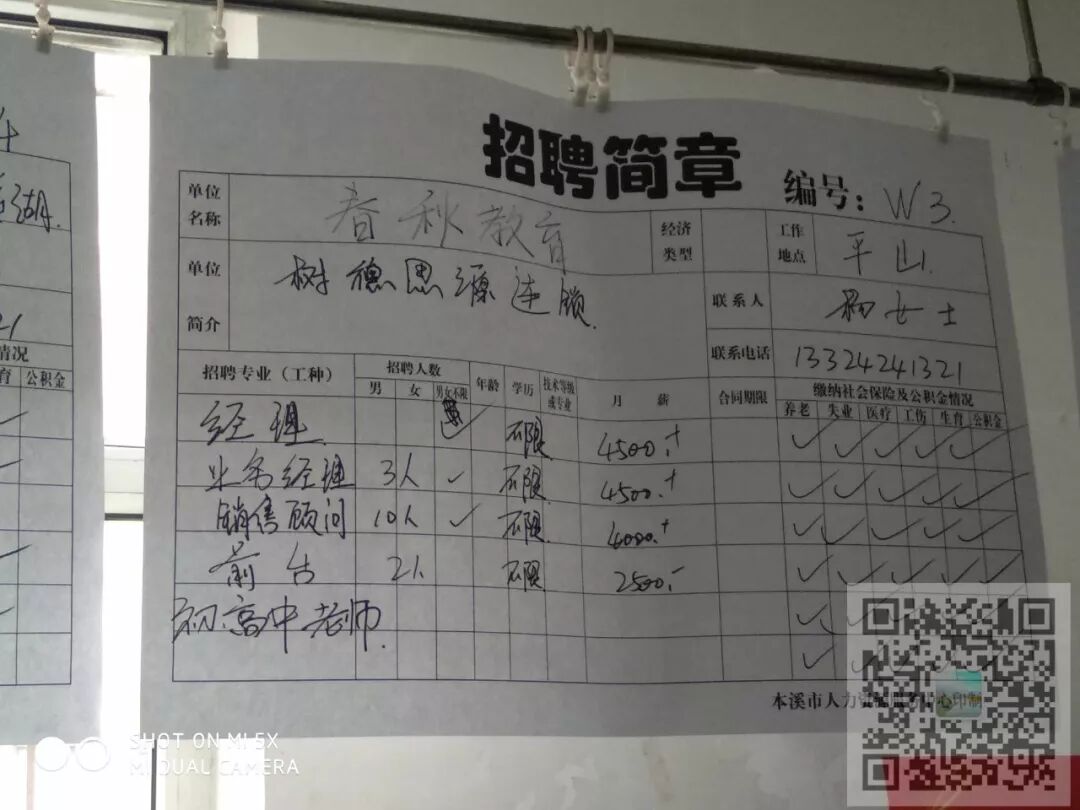 招聘简章
编号: W3.
单位名称 春秋教育 经济类型 工作地点 平山.
单位简介 树德思源连锁. 联系人 杨女士
联系电话 13324241321
招聘专业（工种） 招聘人数 年龄 学历 技术等级或专业 月薪 合同期限 缴纳社会保险及公积金情况
男 女 男女不限 养老 失业 医疗 工伤 生育 公积金
经理 不限 4500.+ ✓ ✓ ✓ ✓ ✓
业务经理 3人 ✓ 不限 4500.+ ✓ ✓ ✓ ✓ ✓
销售顾问 10人 ✓ 不限 4000.+ ✓ ✓ ✓ ✓ ✓
前台 2人 不限 2500.- ✓ ✓ ✓ ✓ ✓
初.高中老师. ✓
✓
本溪市人力
印制
湖.
21
情况
育 公积金
SHOT ON MI 5X
MI DUAL CAMERA